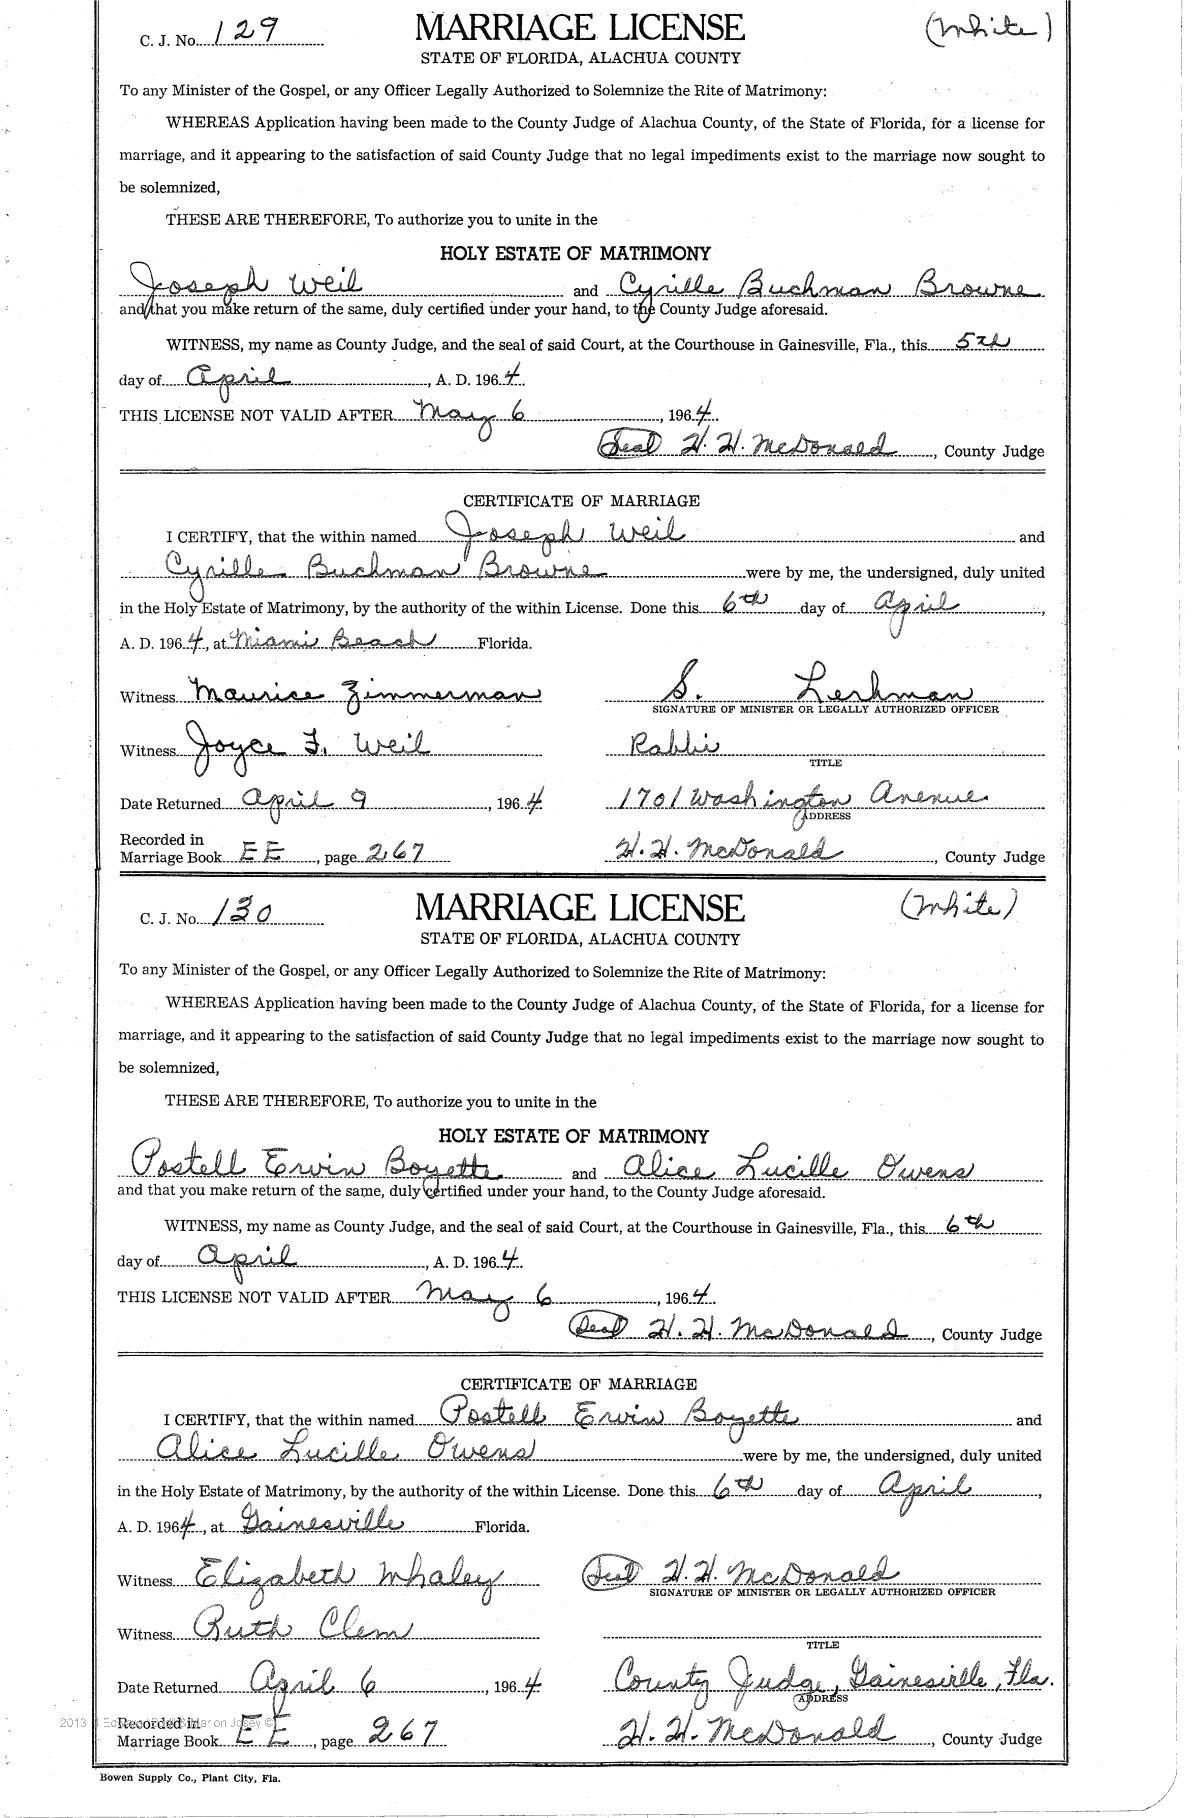 C. J. No. 129 MARRIAGE LICENSE (White)
STATE OF FLORIDA, ALACHUA COUNTY
To any Minister of the Gospel, or any Officer Legally Authorized to Solemnize the Rite of Matrimony:
WHEREAS Application having been made to the County Judge of Alachua County, of the State of Florida, for a license for
marriage, and it appearing to the satisfaction of said County Judge that no legal impediments exist to the marriage now sought to
be solemnized,
THESE ARE THEREFORE, To authorize you to unite in the
HOLY ESTATE OF MATRIMONY
Joseph Weil and Cyrille Buchman Browne
and that you make return of the same, duly certified under your hand, to the County Judge aforesaid.
WITNESS, my name as County Judge, and the seal of said Court, at the Courthouse in Gainesville, Fla., this 5th
day of April, A. D. 1964.
THIS LICENSE NOT VALID AFTER May 6, 1964.
(Seal) H. H. McDonald, County Judge
CERTIFICATE OF MARRIAGE
I CERTIFY, that the within named Joseph Weil and
Cyrille Buchman Browne were by me, the undersigned, duly united
in the Holy Estate of Matrimony, by the authority of the within License. Done this 6th day of April,
A. D. 1964, at Miami Beach Florida.
Witness Maurice Zimmerman S. Lerhman
SIGNATURE OF MINISTER OR LEGALLY AUTHORIZED OFFICER
Witness Joyce F. Weil Rabbi
TITLE
Date Returned April 9, 1964 1701 Washington Avenue
ADDRESS
Recorded in
Marriage Book EE, page 267 H. H. McDonald, County Judge
C. J. No. 130 MARRIAGE LICENSE (White)
STATE OF FLORIDA, ALACHUA COUNTY
To any Minister of the Gospel, or any Officer Legally Authorized to Solemnize the Rite of Matrimony:
WHEREAS Application having been made to the County Judge of Alachua County, of the State of Florida, for a license for
marriage, and it appearing to the satisfaction of said County Judge that no legal impediments exist to the marriage now sought to
be solemnized,
THESE ARE THEREFORE, To authorize you to unite in the
HOLY ESTATE OF MATRIMONY
Postell Ervin Boyette and Alice Lucille Owens
and that you make return of the same, duly certified under your hand, to the County Judge aforesaid.
WITNESS, my name as County Judge, and the seal of said Court, at the Courthouse in Gainesville, Fla., this 6th
day of April, A. D. 1964.
THIS LICENSE NOT VALID AFTER May 6, 1964.
(Seal) H. H. McDonald, County Judge
CERTIFICATE OF MARRIAGE
I CERTIFY, that the within named Postell Ervin Boyette and
Alice Lucille Owens were by me, the undersigned, duly united
in the Holy Estate of Matrimony, by the authority of the within License. Done this 6th day of April,
A. D. 1964, at Gainesville Florida.
Witness Elizabeth Whaley (Seal) H. H. McDonald
SIGNATURE OF MINISTER OR LEGALLY AUTHORIZED OFFICER
Witness Ruth Clem
TITLE
Date Returned April 6, 1964 County Judge, Gainesville, Fla.
ADDRESS
2013
Recorded in
Marriage Book EE, page 267 H. H. McDonald, County Judge
Bowen Supply Co., Plant City, Fla.